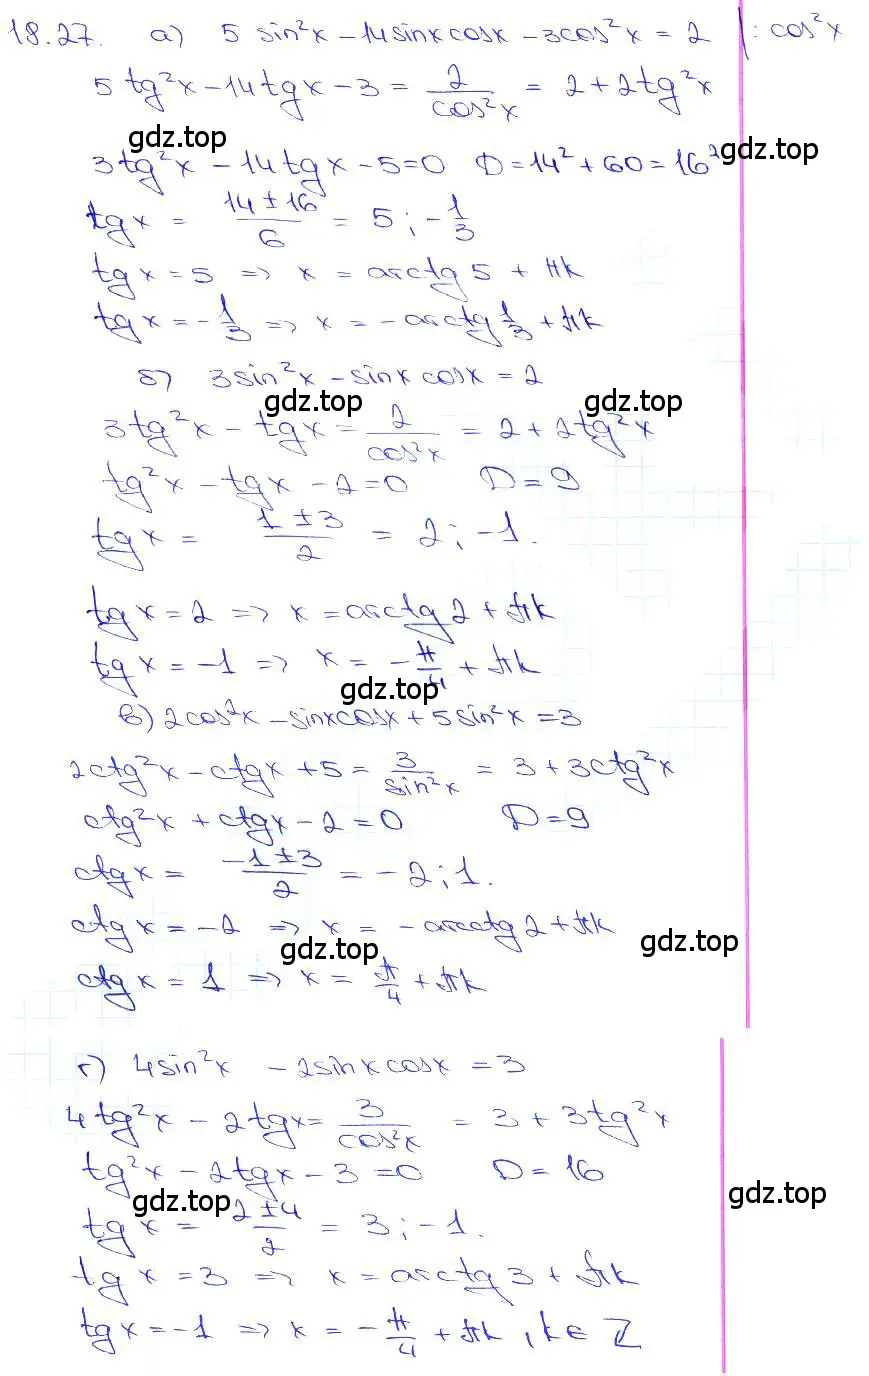 18.27. а) 5 sin²x - 14sinxcosx - 3cos²x = 2 | : cos²x
5 tg²x - 14tgx - 3 = 2/cos²x = 2 + 2tg²x
gdz.top
gdz.top
3tg²x - 14tgx - 5 = 0 D = 14² + 60 = 16²
tgx = (14 ± 16)/6 = 5; -1/3
tgx = 5 => x = arctg 5 + πk
tgx = -1/3 => x = -arctg 1/3 + πk
б) 3sin²x - sinxcosx = 2
gdz.top
gdz.top
3tg²x - tgx = 2/cos²x = 2 + 2tg²x
tg²x - tgx - 2 = 0 D = 9
tgx = (1 ± 3)/2 = 2; -1.
tgx = 2 => x = arctg 2 + πk
tgx = -1 => x = -π/4 + πk
gdz.top
в) 2cos²x - sinxcosx + 5sin²x = 3
2ctg²x - ctgx + 5 = 3/sin²x = 3 + 3ctg²x
ctg²x + ctgx - 2 = 0 D = 9
ctgx = (-1 ± 3)/2 = -2; 1.
ctgx = -2 => x = -arcctg 2 + πk
gdz.top
gdz.top
ctgx = 1 => x = π/4 + πk
г) 4sin²x - 2sinxcosx = 3
4tg²x - 2tgx = 3/cos²x = 3 + 3tg²x
tg²x - 2tgx - 3 = 0 D = 16
gdz.top
gdz.top
tgx = (2 ± 4)/2 = 3; -1.
tgx = 3 => x = arctg 3 + πk
tgx = -1 => x = -π/4 + πk, k ∈ Z